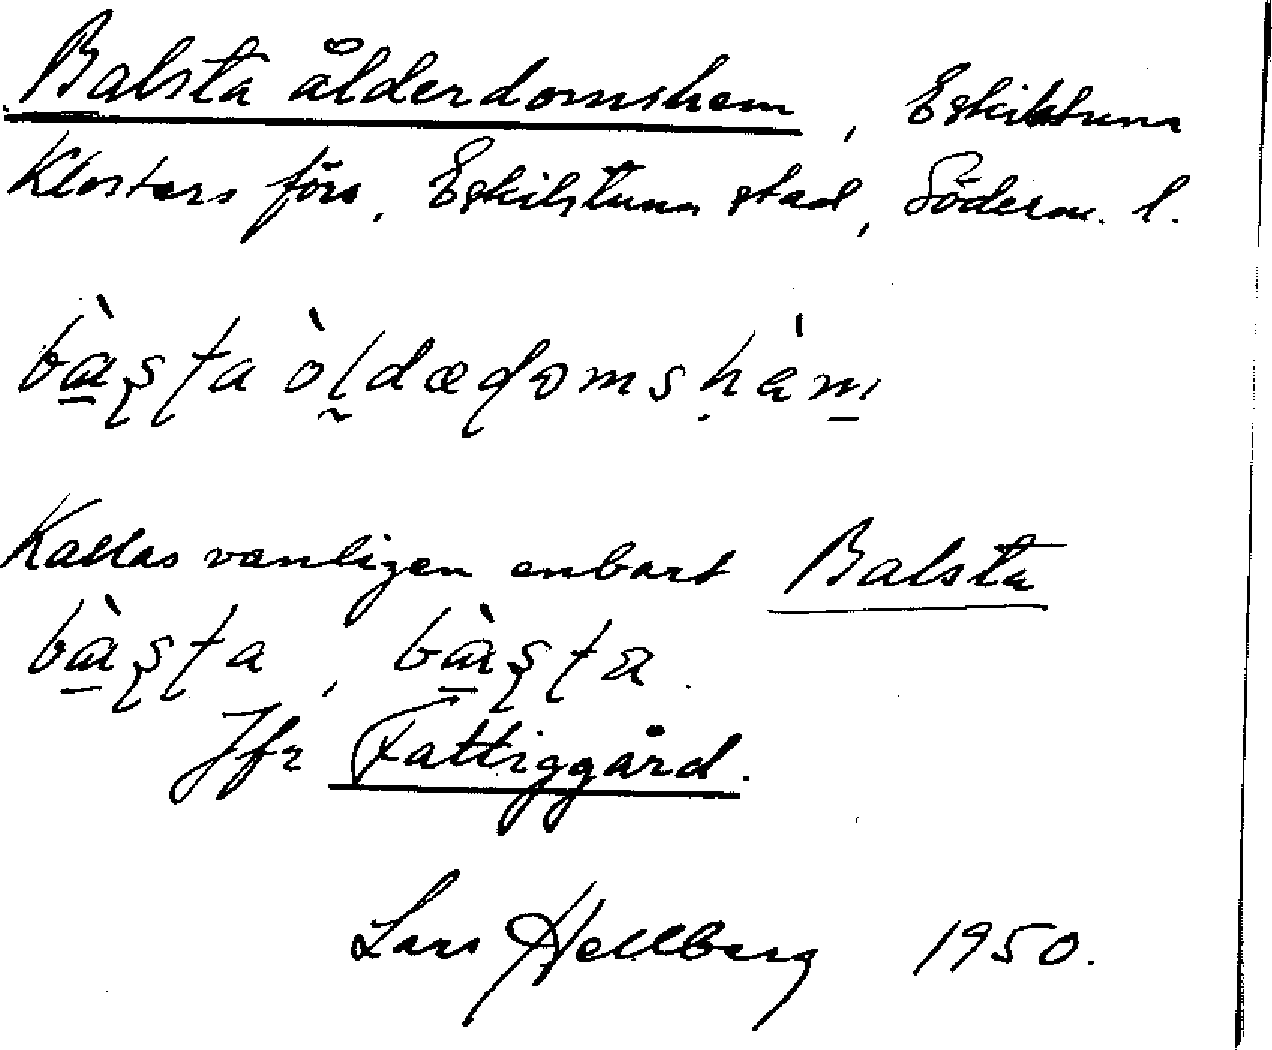 Balsta ålderdomshem, Eskilstuna
Klosters förs, Eskilstuna stad, Söderm. l.
bà̱ʂʈa òl̰dæɖomsḥàm̱
Kallas vanligen enbart Balsta
bà̱ʂʈa, bà̱ʂʈa.
Jfr Fattiggård.
Lars Hellberg 1950.